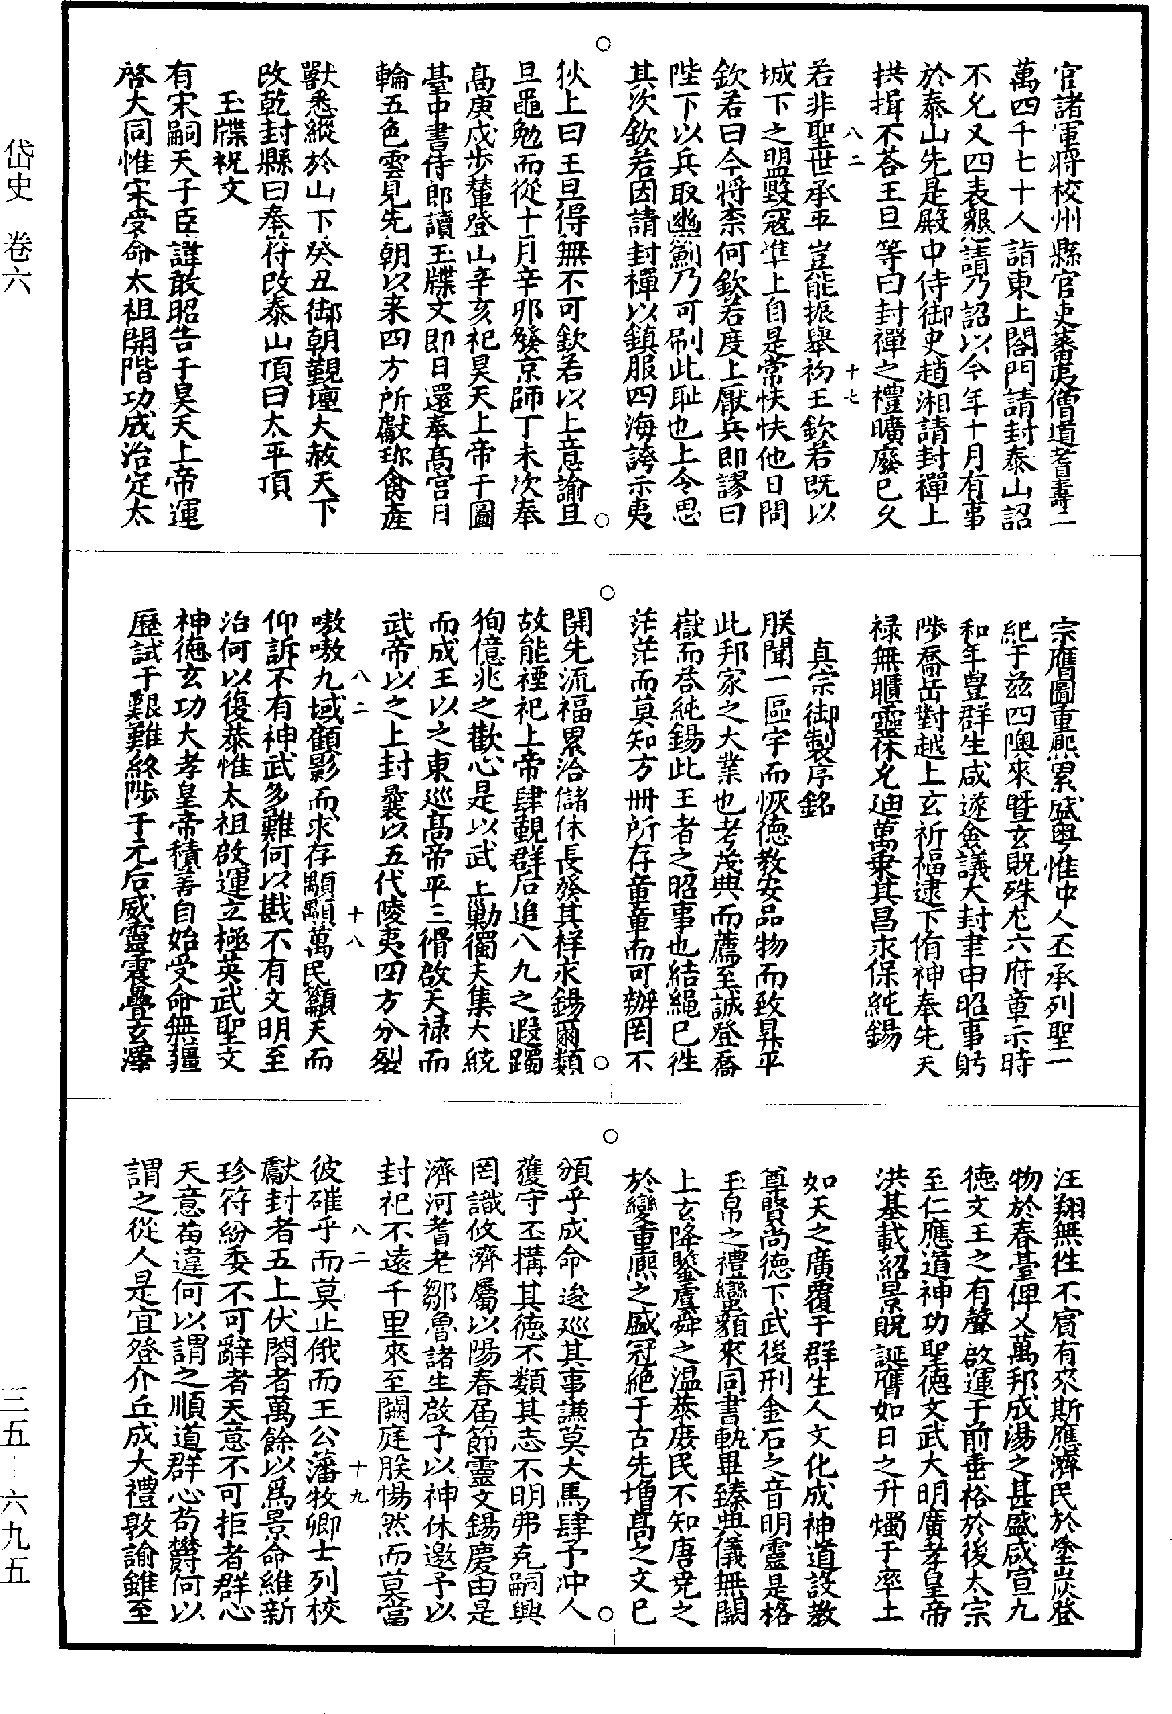 岱史　卷六
官諸軍將校州縣官吏蕃夷僧道耆壽二
萬四千七十人詣東上閤門請封泰山詔
不允又四表懇請乃詔以今年十月有事
於泰山先是殿中侍御史趙湘請封禪上
拱揖不荅王旦等曰封禪之禮曠廢已久
八二　十七
若非聖世承平豈能振舉初王欽若既以
城下之盟毀寇準上自是常怏怏他日問
欽若曰今將柰何欽若度上厭兵即謬曰
陛下以兵取幽薊乃可刷此耻也上令思
其次欽若因請封禪以鎮服四海誇示夷
狄上曰王旦得無不可欽若以上意諭旦
旦黽勉而從十月辛卯發京師丁未次奉
高庚戌步輦登山辛亥祀昊天上帝于圜
臺中書侍郎讀玉牒文即日還奉高宮日
輪五色雲見先朝以来四方所獻珎禽產
獸悉縱於山下癸丑御朝覲壇大赦天下
改乾封縣曰奉符改泰山頂曰太平頂
玉牒祝文
有宋嗣天子臣諱敢昭告于昊天上帝運
啓大同惟宋受命太祖開階功成治定太
宗膺圖重熈累盛粤惟中人丕承列聖一
紀于兹四隩來曁玄貺殊尤六府章示時
和年豊群生咸遂僉議大封聿申昭事躬
陟喬岳對越上玄祈福逮下侑神奉先天
禄無曠靈休允迪萬乗其昌永保純錫
真宗御製序銘
朕聞一區宇而恢德教安品物而致昇平
此邦家之大業也考茂典而薦至誠登喬
嶽而荅純錫此王者之昭事也結繩已徃
茫茫而莫知方冊所存章章而可辦罔不
開先流福累洽儲休長發其祥永錫爾類
故能禋祀上帝肆覲群后追八九之遐躅
徇億兆之歡心是以武王勦獨夫集大統
而成王以之東巡高帝平三猾啟天禄而
武帝以之上封曩以五代陵夷四方分裂
八二　十八
嗷嗷九域顧影而求存顒顒萬民籲天而
仰訴不有神武多難何以戡不有文明至
治何以復恭惟太祖啟運立極英武聖文
神德玄功大孝皇帝積善自始受命無疆
歷試于艱難終陟于元后威靈震疊玄澤
汪翔無徃不賓有來斯應濟民於塗炭登
物於春臺俾乂萬邦成湯之甚盛咸宣九
德文王之有聲啟運于前垂裕於後太宗
至仁應道神功聖德文武大明廣孝皇帝
洪基載紹景貺誕膺如日之升燭于率土
如天之廣覆于群生人文化成神道設教
尊賢尚德下武後刑金石之音明靈是格
玉帛之禮蠻貊來同書軌畢臻典儀無闕
上玄降鑒虞舜之温恭庶民不知唐堯之
於變重熈之盛冠絶于古先增高之文已
頒乎成命逡巡其事謙莫大焉肆予冲人
獲守丕搆其徳不類其志不明弗克嗣興
罔識攸濟屬以陽春届節靈文錫慶由是
濟河耆老鄒魯諸生啟予以神休邀予以
封祀不遠千里來至闕庭朕惕然而莫當
八二　十九
彼確乎而莫止俄而王公藩牧卿士列校
獻封者五上伏閤者萬餘以爲景命維新
珍符紛委不可辭者天意不可拒者群心
天意苟違何以謂之順道群心苟欝何以
謂之從人是宜登介丘成大禮敦諭雖至
三五—六九五